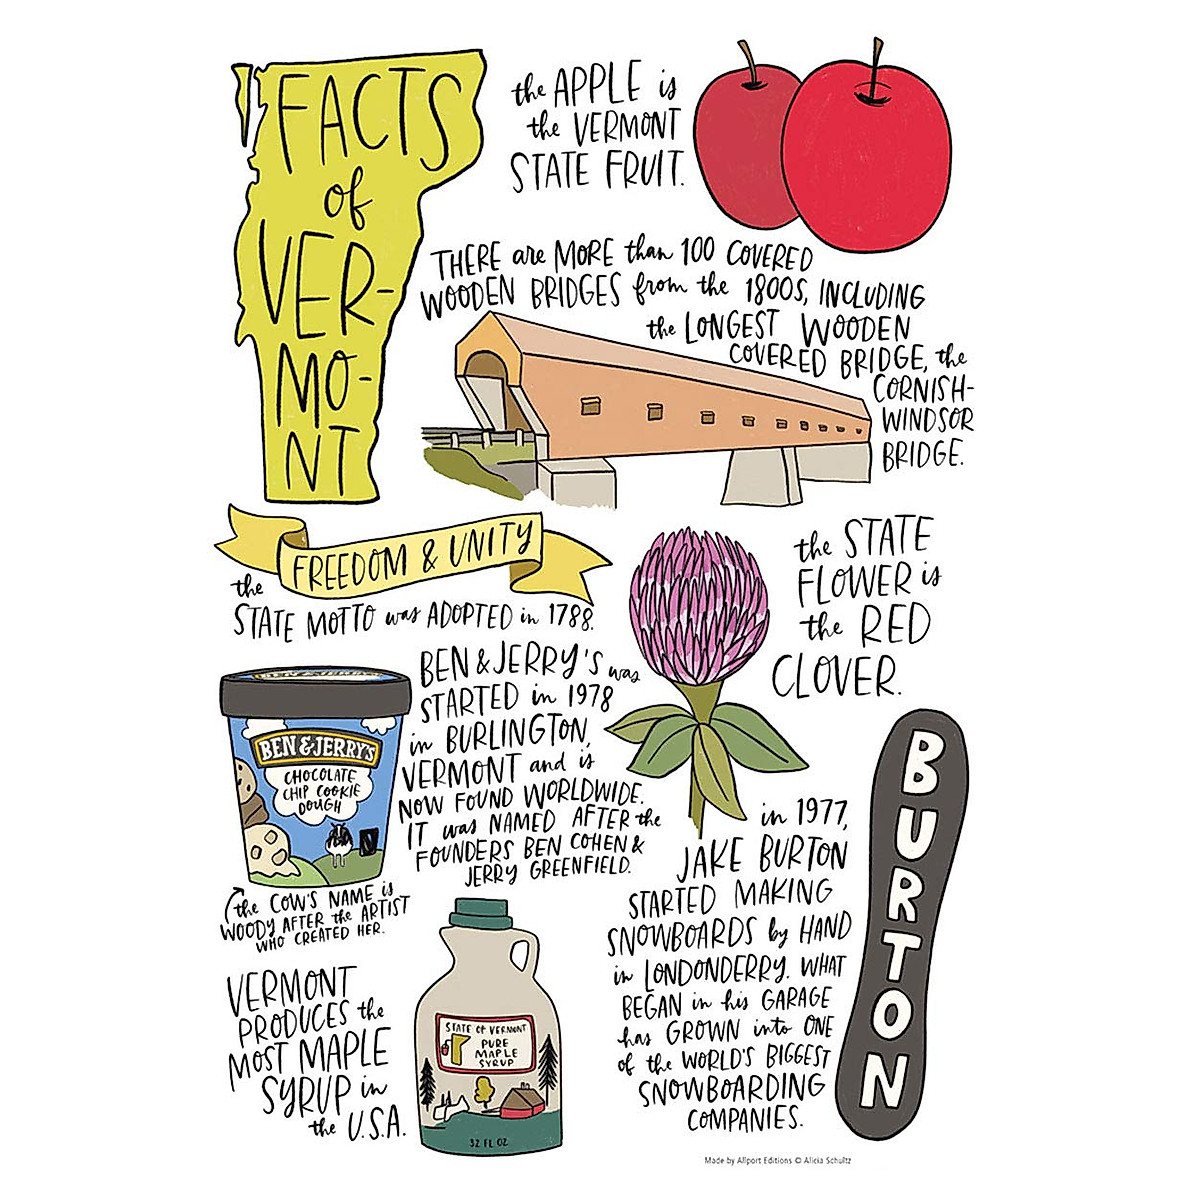 FACTS
of
VER-
MO-
NT
the APPLE is
the VERMONT
STATE FRUIT.
THERE are MORE than 100 COVERED
WOODEN BRIDGES from the 1800s, INCLUDING
the LONGEST WOODEN
COVERED BRIDGE, the
CORNISH-
WINDSOR
BRIDGE.
FREEDOM & UNITY
the
STATE MOTTO was ADOPTED in 1788.
the STATE
FLOWER is
the RED
CLOVER.
BEN & JERRY'S was
STARTED in 1978
in BURLINGTON,
VERMONT and is
NOW FOUND WORLDWIDE.
IT was NAMED AFTER the
FOUNDERS BEN COHEN &
JERRY GREENFIELD.
BEN & JERRY'S
BEN & JERRY'S
CHOCOLATE
CHIP COOKIE
DOUGH
the COW'S NAME is
WOODY AFTER the ARTIST
WHO CREATED HER.
in 1977,
JAKE BURTON
STARTED MAKING
SNOWBOARDS by HAND
in LONDONDERRY. WHAT
BEGAN in his GARAGE
has GROWN into ONE
of the WORLD'S BIGGEST
SNOWBOARDING
COMPANIES.
BURTON
VERMONT
PRODUCES the
MOST MAPLE
SYRUP in
the U.S.A.
STATE OF VERMONT
PURE
MAPLE
SYRUP
32 FL OZ
Made by Allport Editions © Alicia Schultz